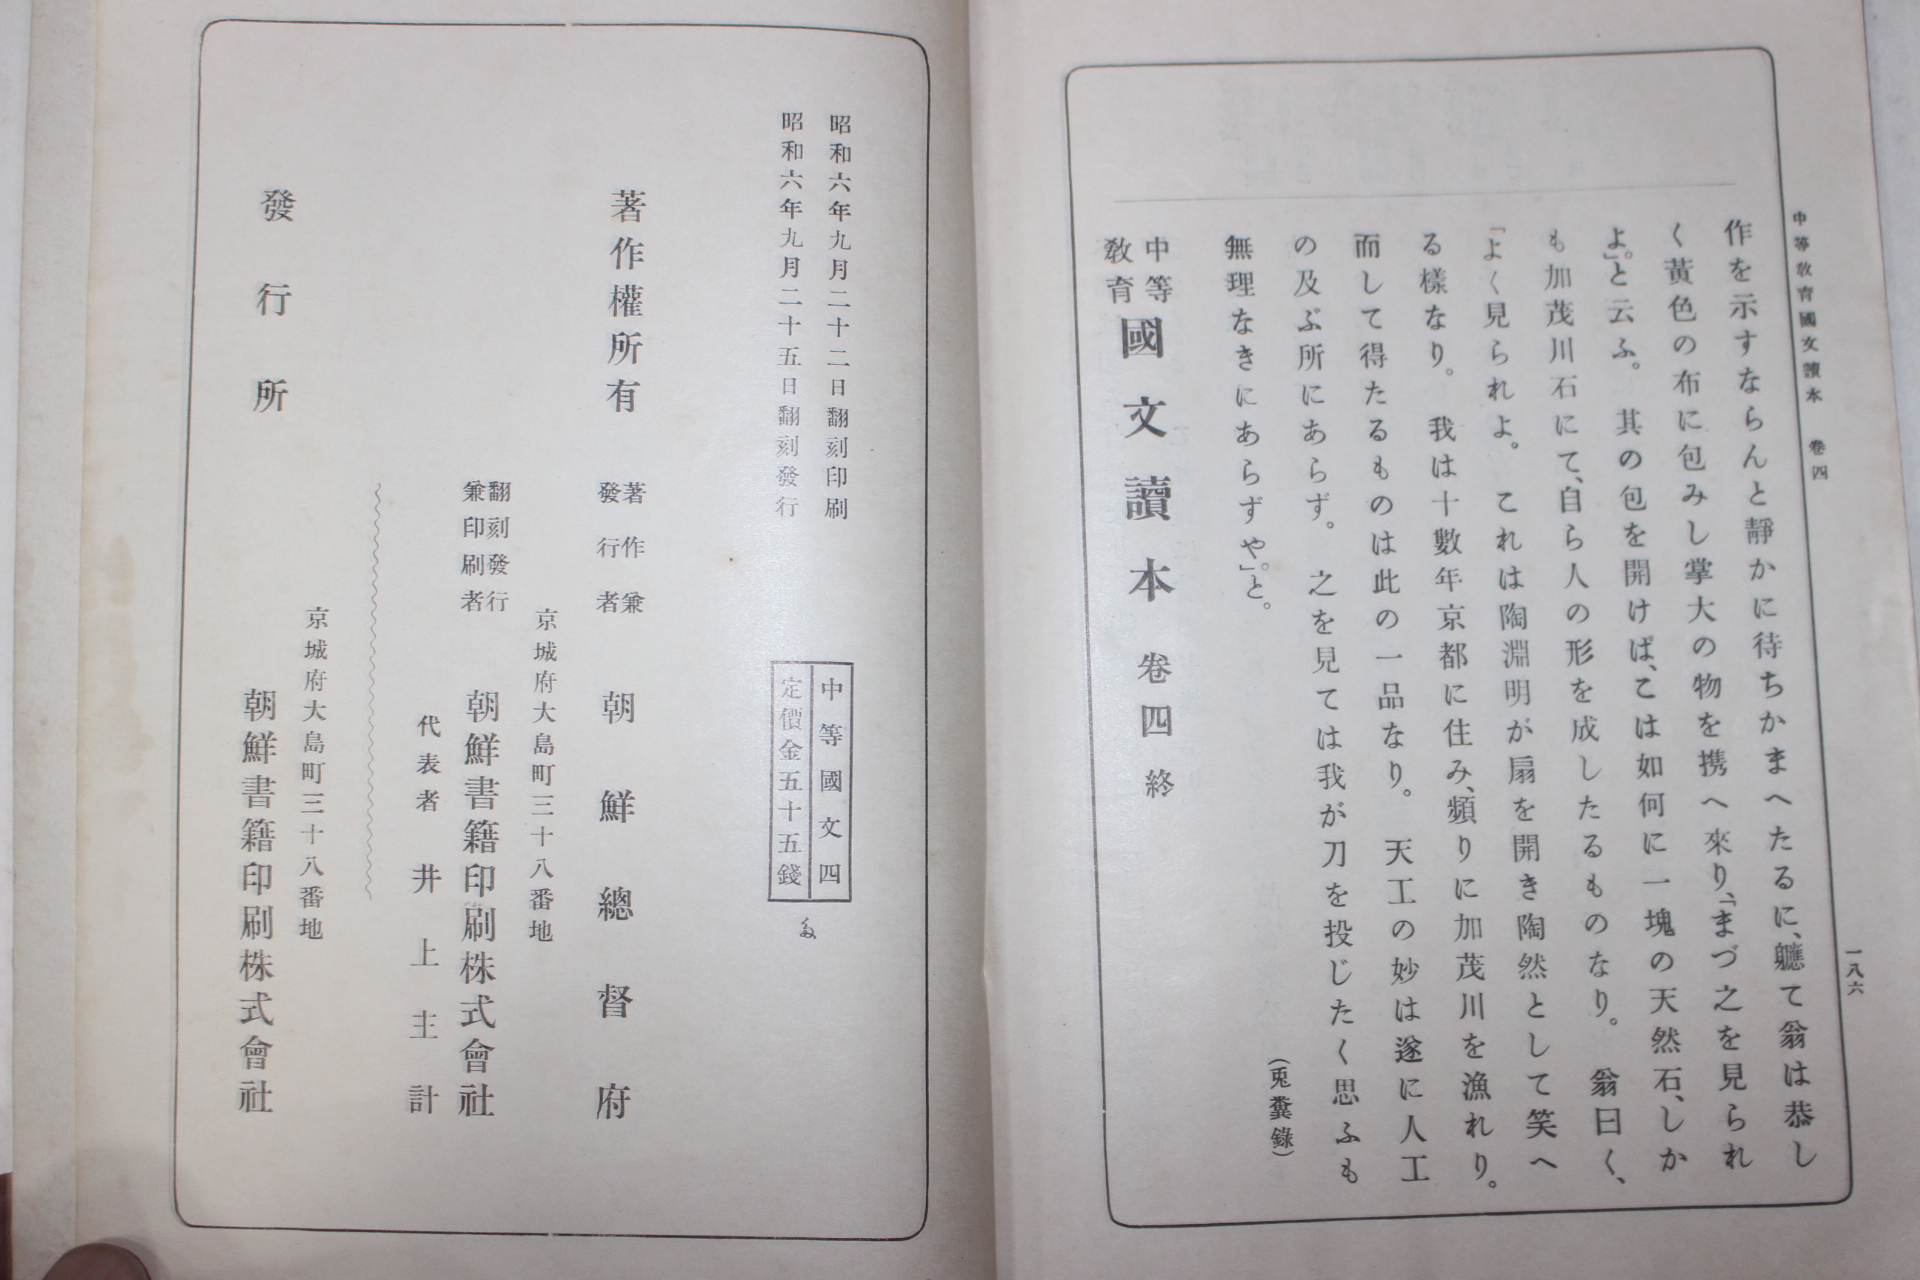 中等敎育國文讀本 卷四
一八六
作を示すならんと靜かに待ちかまへたるに、軈て翁は恭し
く黃色の布に包みし掌大の物を携へ來り、「まづ之を見られ
よ。」と云ふ。其の包を開けば、こは如何に一塊の天然石、しか
も加茂川石にて、自ら人の形を成したるものなり。翁曰く、
「よく見られよ。これは陶淵明が扇を開き陶然として笑へ
る樣なり。我は十數年京都に住み、頻りに加茂川を漁れり。
而して得たるものは此の一品なり。天工の妙は遂に人工
の及ぶ所にあらず。之を見ては我が刀を投じたく思ふも
無理なきにあらずや。」と。
(兎糞錄)
中等敎育國文讀本 卷四 終
昭和六年九月二十二日翻刻印刷
昭和六年九月二十五日翻刻發行
中等國文四
定價金五十五錢
著作權所有
著作兼發行者 朝鮮總督府
京城府大島町三十八番地
翻刻發行兼印刷者 朝鮮書籍印刷株式會社
代表者 井上主計
京城府大島町三十八番地
發行所 朝鮮書籍印刷株式會社